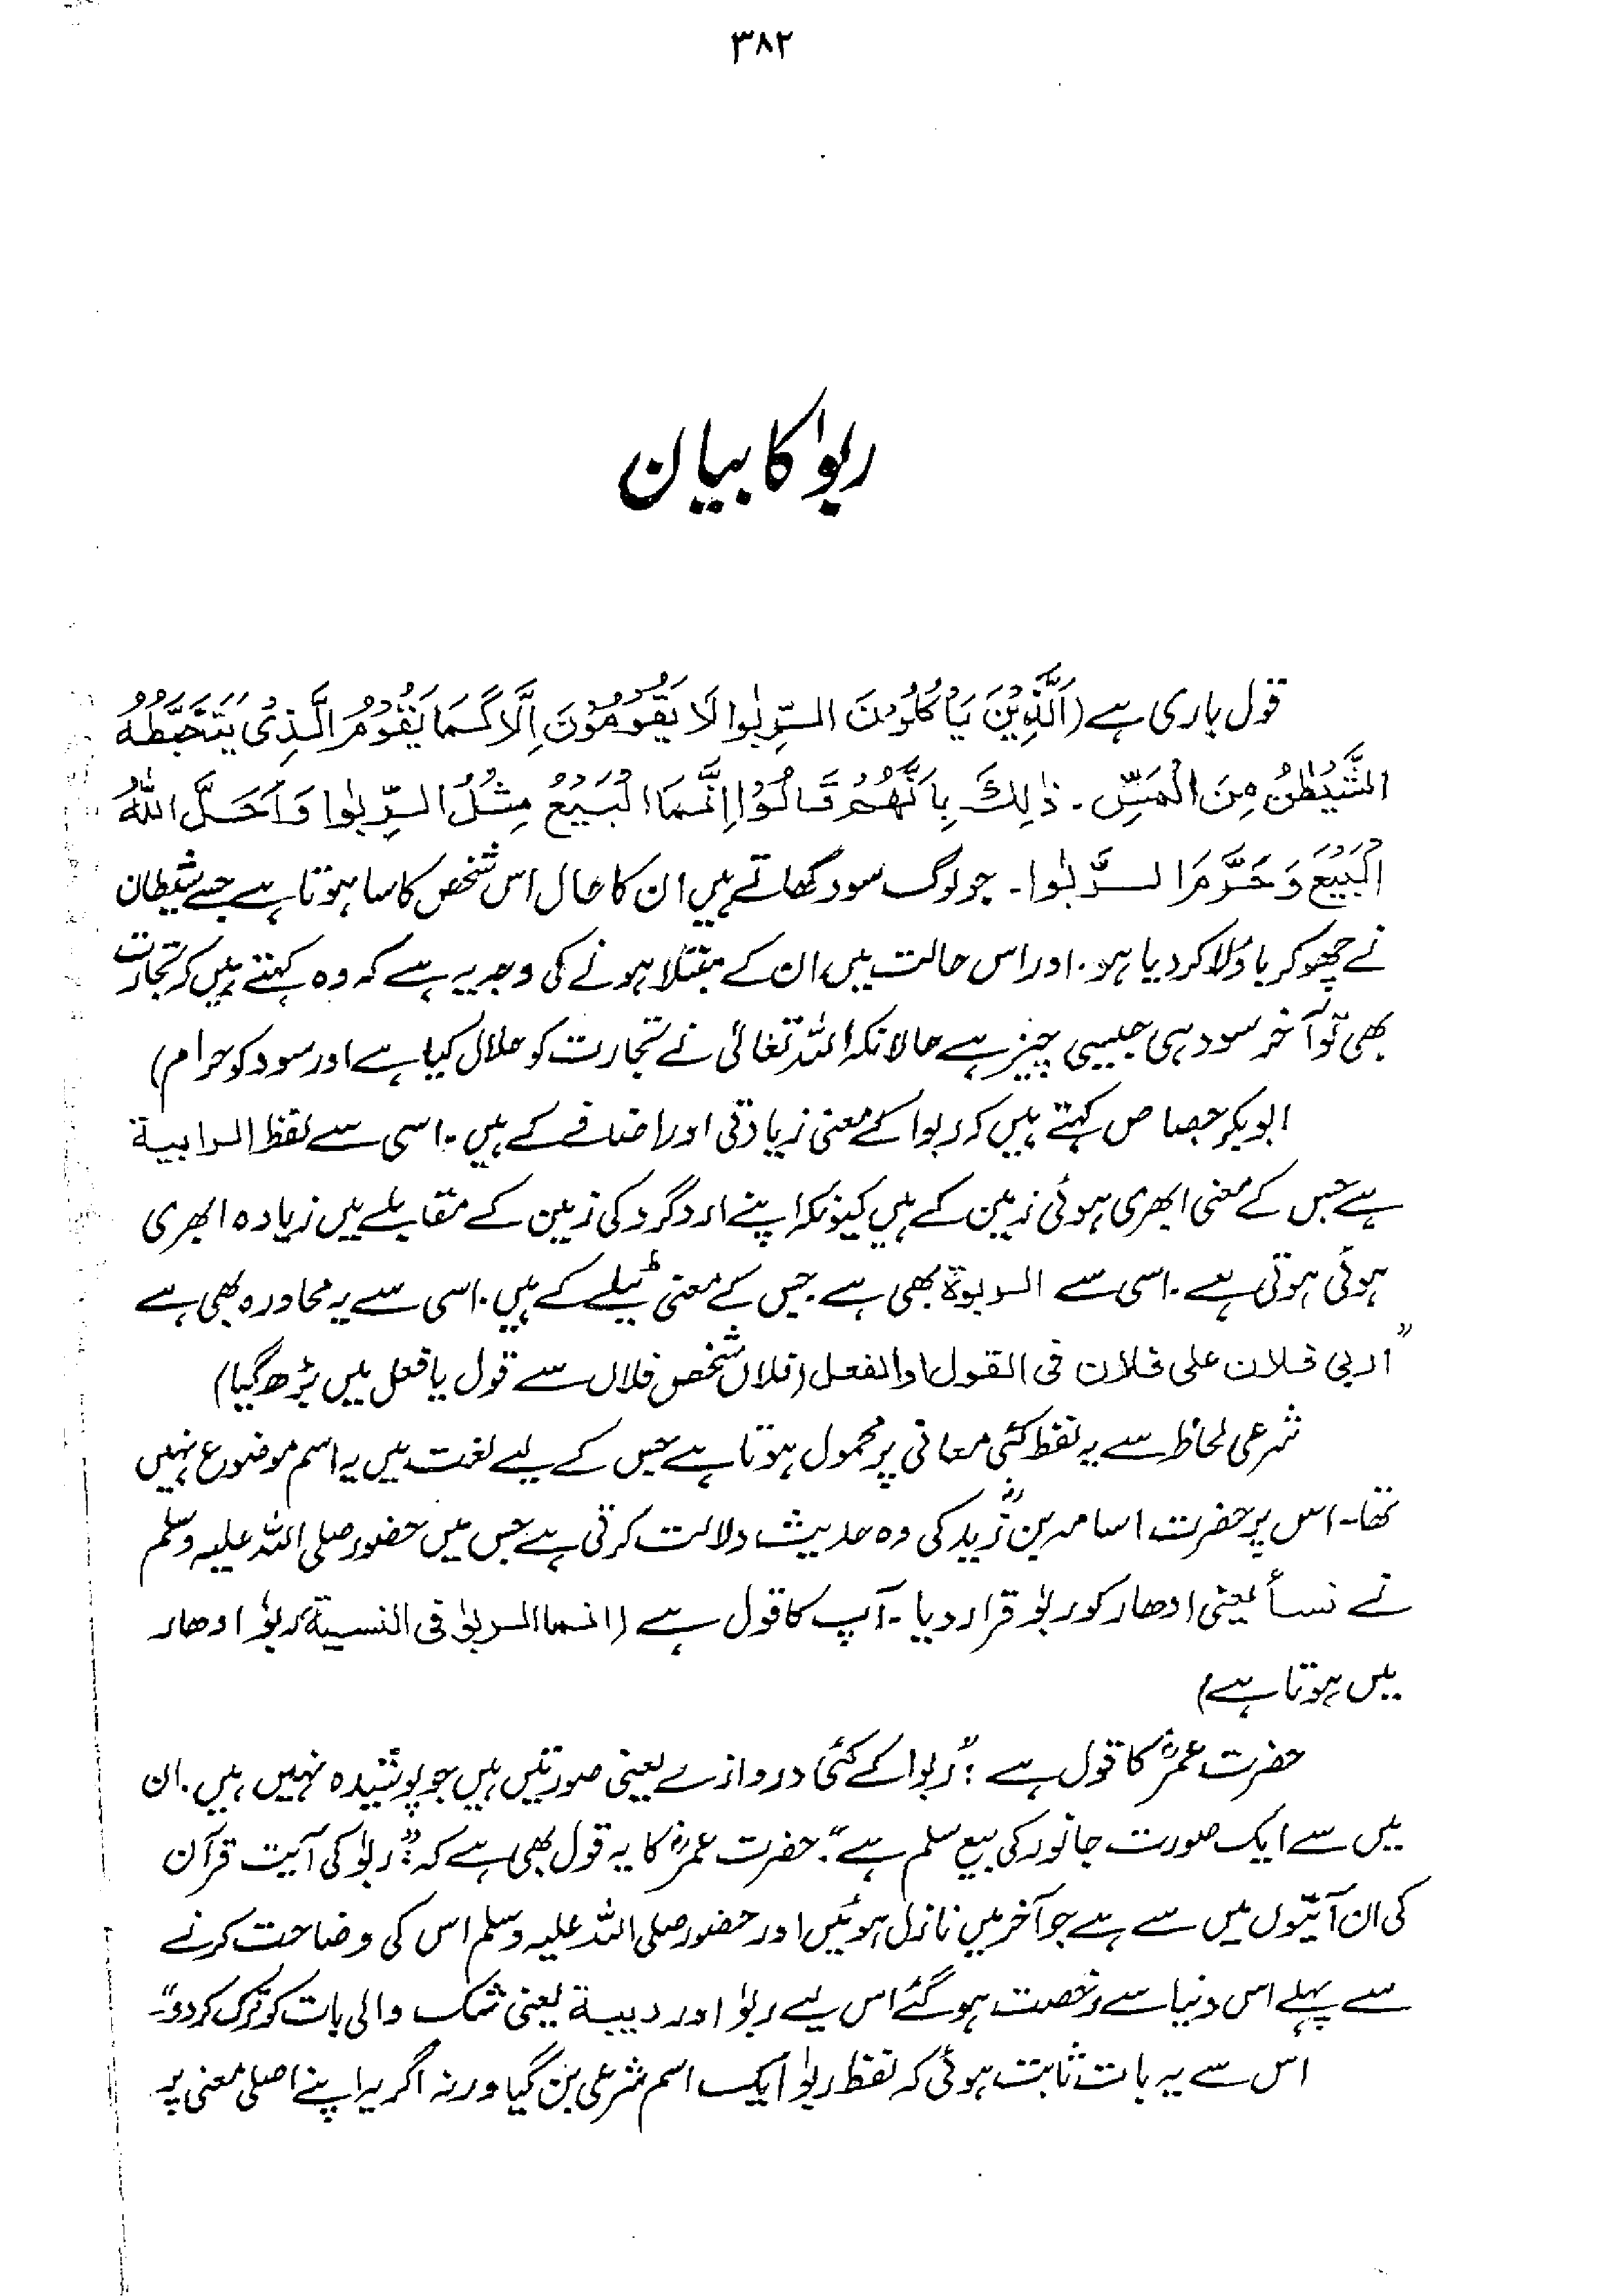 ۳۸۲
ربوٰا کا بیان
قول باری ہے (اَلَّذِیْنَ یَاْکُلُوْنَ الرِّبٰوا لَا یَقُوْمُوْنَ اِلَّا کَمَا یَقُوْمُ الَّذِیْ یَتَخَبَّطُهُ
الشَّیْطٰنُ مِنَ الْمَسِّ۔ ذٰلِكَ بِاَنَّهُمْ قَالُوْا اِنَّمَا الْبَیْعُ مِثْلُ الرِّبٰوا وَاَحَلَّ اللهُ
الْبَیْعَ وَحَرَّمَ الرِّبٰوا۔ جو لوگ سود کھاتے ہیں ان کا حال اس شخص کا سا ہوتا ہے جسے شیطان
نے چھو کر باؤلا کر دیا ہو۔ اور اس حالت میں ان کے مبتلا ہونے کی وجہ یہ ہے کہ وہ کہتے ہیں کہ تجارت
بھی تو آخر سود ہی جیسی چیز ہے حالانکہ اللہ تعالیٰ نے تجارت کو حلال کیا ہے اور سود کو حرام)
ابوبکر جصاص کہتے ہیں کہ ربوا کے معنی زیادتی اور اضافے کے ہیں۔ اسی سے لفظ الرابیة
ہے جس کے معنی ابھری ہوئی زمین کے ہیں کیونکہ اپنے اردگرد کی زمین کے مقابلے میں زیادہ ابھری
ہوئی ہوتی ہے۔ اسی سے الربوة بھی ہے۔ جس کے معنی ٹیلے کے ہیں۔ اسی سے یہ محاورہ بھی ہے
"اربی فلان علی فلان فی القول او الفعل (فلاں شخص فلاں سے قول یا فعل میں بڑھ گیا)
شرعی لحاظ سے یہ لفظ کئی معانی پر محمول ہوتا ہے جس کے لیے لغت میں یہ اسم موضوع نہیں
تھا۔ اس پر حضرت اسامہ بن زیدؓ کی وہ حدیث دلالت کرتی ہے جس میں حضور صلی اللہ علیہ وسلم
نے نسأ یعنی ادھار کو ربوٰ قرار دیا۔ آپ کا قول ہے (انما الربوٰ فی النسیة، ربوٰ ادھار
میں ہوتا ہے)
حضرت عمرؓ کا قول ہے : "ربوا کے کئی دروازے یعنی صورتیں ہیں جو پوشیدہ نہیں ہیں۔ ان
میں سے ایک صورت جانور کی بیع سلم ہے"۔ حضرت عمرؓ کا یہ قول بھی ہے کہ : "ربوٰ کی آیت قرآن
کی ان آیتوں میں سے ہے جو آخر میں نازل ہوئیں اور حضور صلی اللہ علیہ وسلم اس کی وضاحت کرنے
سے پہلے اس دنیا سے رخصت ہو گئے اس لیے ربوٰ اور ریبة یعنی شک والی بات کو ترک کر دو"۔
اس سے یہ بات ثابت ہوئی کہ لفظ ربوٰ ایک اسم شرعی بن گیا ورنہ اگر یہ اپنے اصلی معنی پر